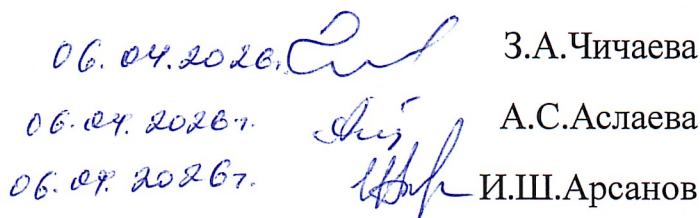 06.04.2026г. З.А.Чичаева
06.04.2026г. А.С.Аслаева
06.04.2026г. И.Ш.Арсанов